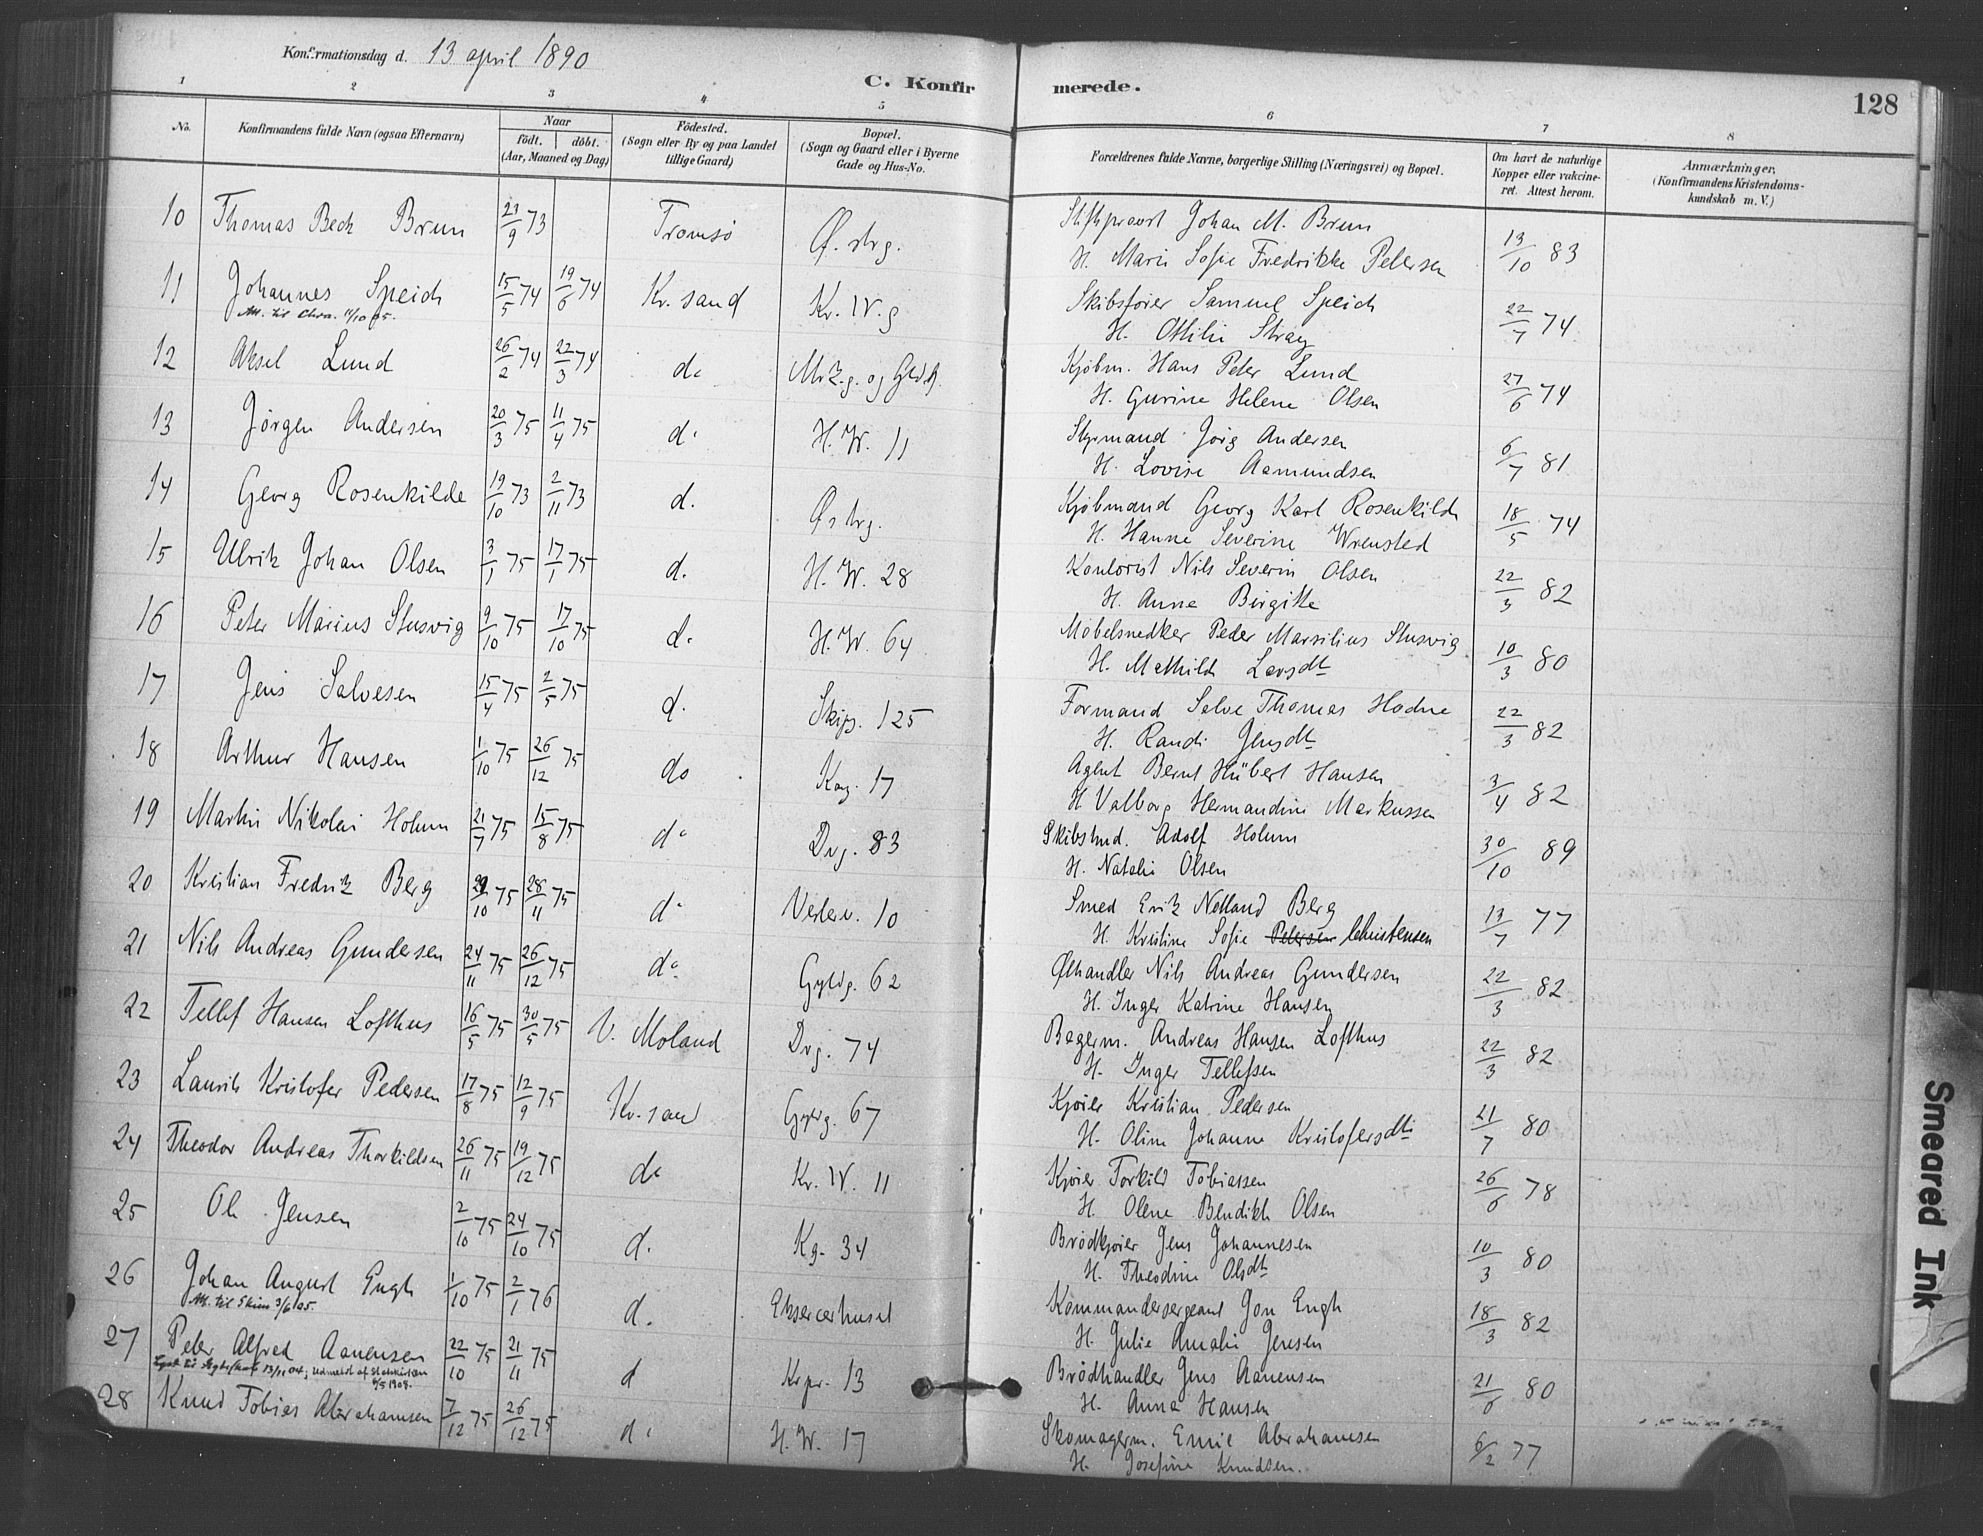 Konfirmationsdag d. 13 april 1890
C. Konfirmerede.
128
1 2 3 4 5 6 7 8
No.
Konfirmandens fulde Navn (ogsaa Efternavn)
Naar
födt. döbt.
(Aar, Maaned og Dag)
Födested.
(Sogn eller By og paa Landet
tillige Gaard)
Bopæl.
(Sogn og Gaard eller i Byerne
Gade og Hus-No.
Forældrenes fulde Navne, borgerlige Stilling (Næringsvei) og Bopæl.
Om havt de naturlige
Kopper eller vakcine-
ret. Attest herom.
Anmærkninger.
(Konfirmandens Kristendoms-
kundskab m. V.)
10 Thomas Bech Brun 21/9 73 Tromsö Ø. strg. Stiftsprovst Johan M. Brun 13/10 83
H. Marie Sofie Fredrikke Petersen
11 Johannes Speich 15/5 74 19/6 74 Kr.sand Kr. IV. g Skibsfører Samuel Speich 22/7 74
Att. til Chra. 11/10 95.
H. Othilie Stray
12 Aksel Lund 26/2 74 22/3 74 do Mrk.g. og Gld.g. Kjøbm. Hans Peter Lund 27/6 74
H. Gurine Helene Olsen
13 Jørgen Andersen 20/3 75 11/4 75 d. H. W. 11 Styrmand Jörg Andersen 6/7 81
H. Lovise Aamundsen
14 Georg Rosenkilde 19/10 73 2/11 73 d. Østrg. Kjøbmand Georg Karl Rosenkilde 18/5 74
H. Hanne Severine Wrensted
15 Ulrik Johan Olsen 3/1 75 17/1 75 d. H. W. 28 Kontorist Nils Severin Olsen 22/3 82
H. Anne Birgitte
16 Peter Marius Stusvig 9/10 75 17/10 75 d. H. W. 64 Möbelsnedker Peder Marsilius Stusvig 10/3 80
H. Mathilde Larsdt
17 Jens Salvesen 15/4 75 2/5 75 d. Skip. 125 Formand Salve Thomas Hodne 22/3 82
H. Randi Jensdt
18 Arthur Hansen 1/10 75 26/12 75 do Kng. 17 Agent Bernt Hübert Hansen 3/4 82
H Valborg Hermandine Markussen
19 Martin Nikolai Holum 21/7 75 15/8 75 do Drg. 83 Skibstmd. Adolf Holum 30/10 89
H. Natalie Olsen
20 Kristian Fredrik Berg 29/10 75 28/11 75 do Vesterv. 10 Smed Erik Netland Berg 13/7 77
H. Kristine Sofie Petersen Christensen
21 Nils Andreas Gundersen 24/11 75 26/12 75 do Gyldg. 62 Ølhandler Nils Andreas Gundersen 22/3 82
H. Inger Katrine Hansen
22 Tellef Hansen Lofthus 16/5 75 30/5 75 V. Moland Drg. 74 Bagerm. Andreas Hansen Lofthus 22/3 82
H. Inger Tellefsen
23 Laurits Kristofer Pedersen 17/8 75 12/9 75 Kr.sand Gyldg. 67 Kjøier Kristian Pedersen 21/7 80
H. Oline Johanne Kristofersdt
24 Theodor Andreas Thorkildsen 26/11 75 19/12 75 do Kr. IV. 11 Kjøier Torkild Tobiassen 26/6 78
H. Olene Bendikte Olsen
25 Ole Jensen 2/10 75 24/10 75 d. Kg. 34 Brødkjøier Jens Johannesen 10/3 80
H. Theodine Olsdt
26 Johan August Engh 1/10 75 2/1 76 d. Eksercerhuset Kommandersergeant Jon Engh 18/3 82
Att. til Skien 3/6 05.
H. Julie Amalie Jensen
27 Peter Alfred Aanensen 22/10 75 21/11 75 d Krpr. 13 Brødhandler Jens Aanensen 21/6 80
13/11 04; udmeldt af Statskirken
6/5 1908.
H. Anna Hansen
28 Knud Tobias Abrahamsen 7/12 75 26/12 75 d. H. W. 17 Skomagerm. Emil Abrahamsen 6/2 77
H. Josefine Knudsen.
Smeared Ink